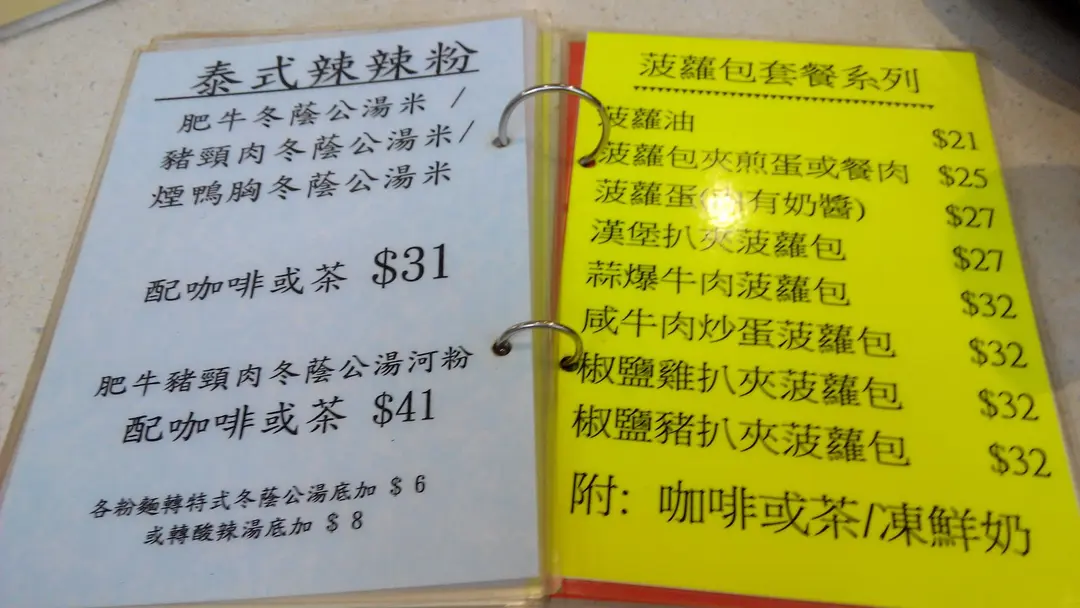 泰式辣辣粉
肥牛冬蔭公湯米 /
豬頸肉冬蔭公湯米/
煙鴨胸冬蔭公湯米
配咖啡或茶 $31
肥牛豬頸肉冬蔭公湯河粉
配咖啡或茶 $41
各粉麵轉特式冬蔭公湯底加 $ 6
或轉酸辣湯底加 $ 8
菠蘿包套餐系列
菠蘿油 $21
菠蘿包夾煎蛋或餐肉 $25
菠蘿蛋(內有奶醬) $27
漢堡扒夾菠蘿包 $27
蒜爆牛肉菠蘿包 $32
咸牛肉炒蛋菠蘿包 $32
椒鹽雞扒夾菠蘿包 $32
椒鹽豬扒夾菠蘿包 $32
附: 咖啡或茶/凍鮮奶